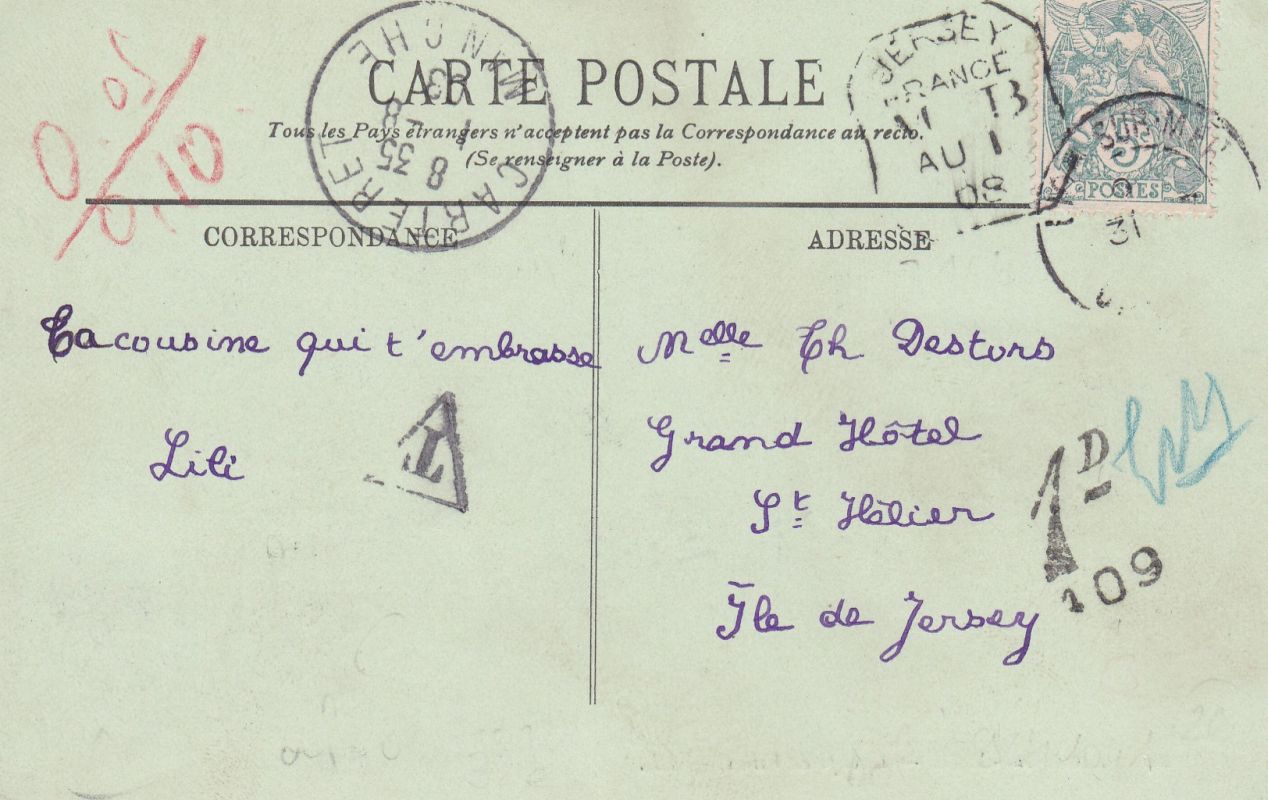 CARTE POSTALE
Tous les Pays étrangers n'acceptent pas la Correspondance au recto.
(Se renseigner à la Poste).
0.05
0,10
CARTERET
MANCHE
8 35
JERSEY
FRANCE
AU 1
08
5
POSTES
31
CORRESPONDANCE
ADRESSE
Ta cousine qui t'embrasse
Lili
T
Melle Th Destors
Grand Hôtel
St Hélier
Île de Jersey
1D
109